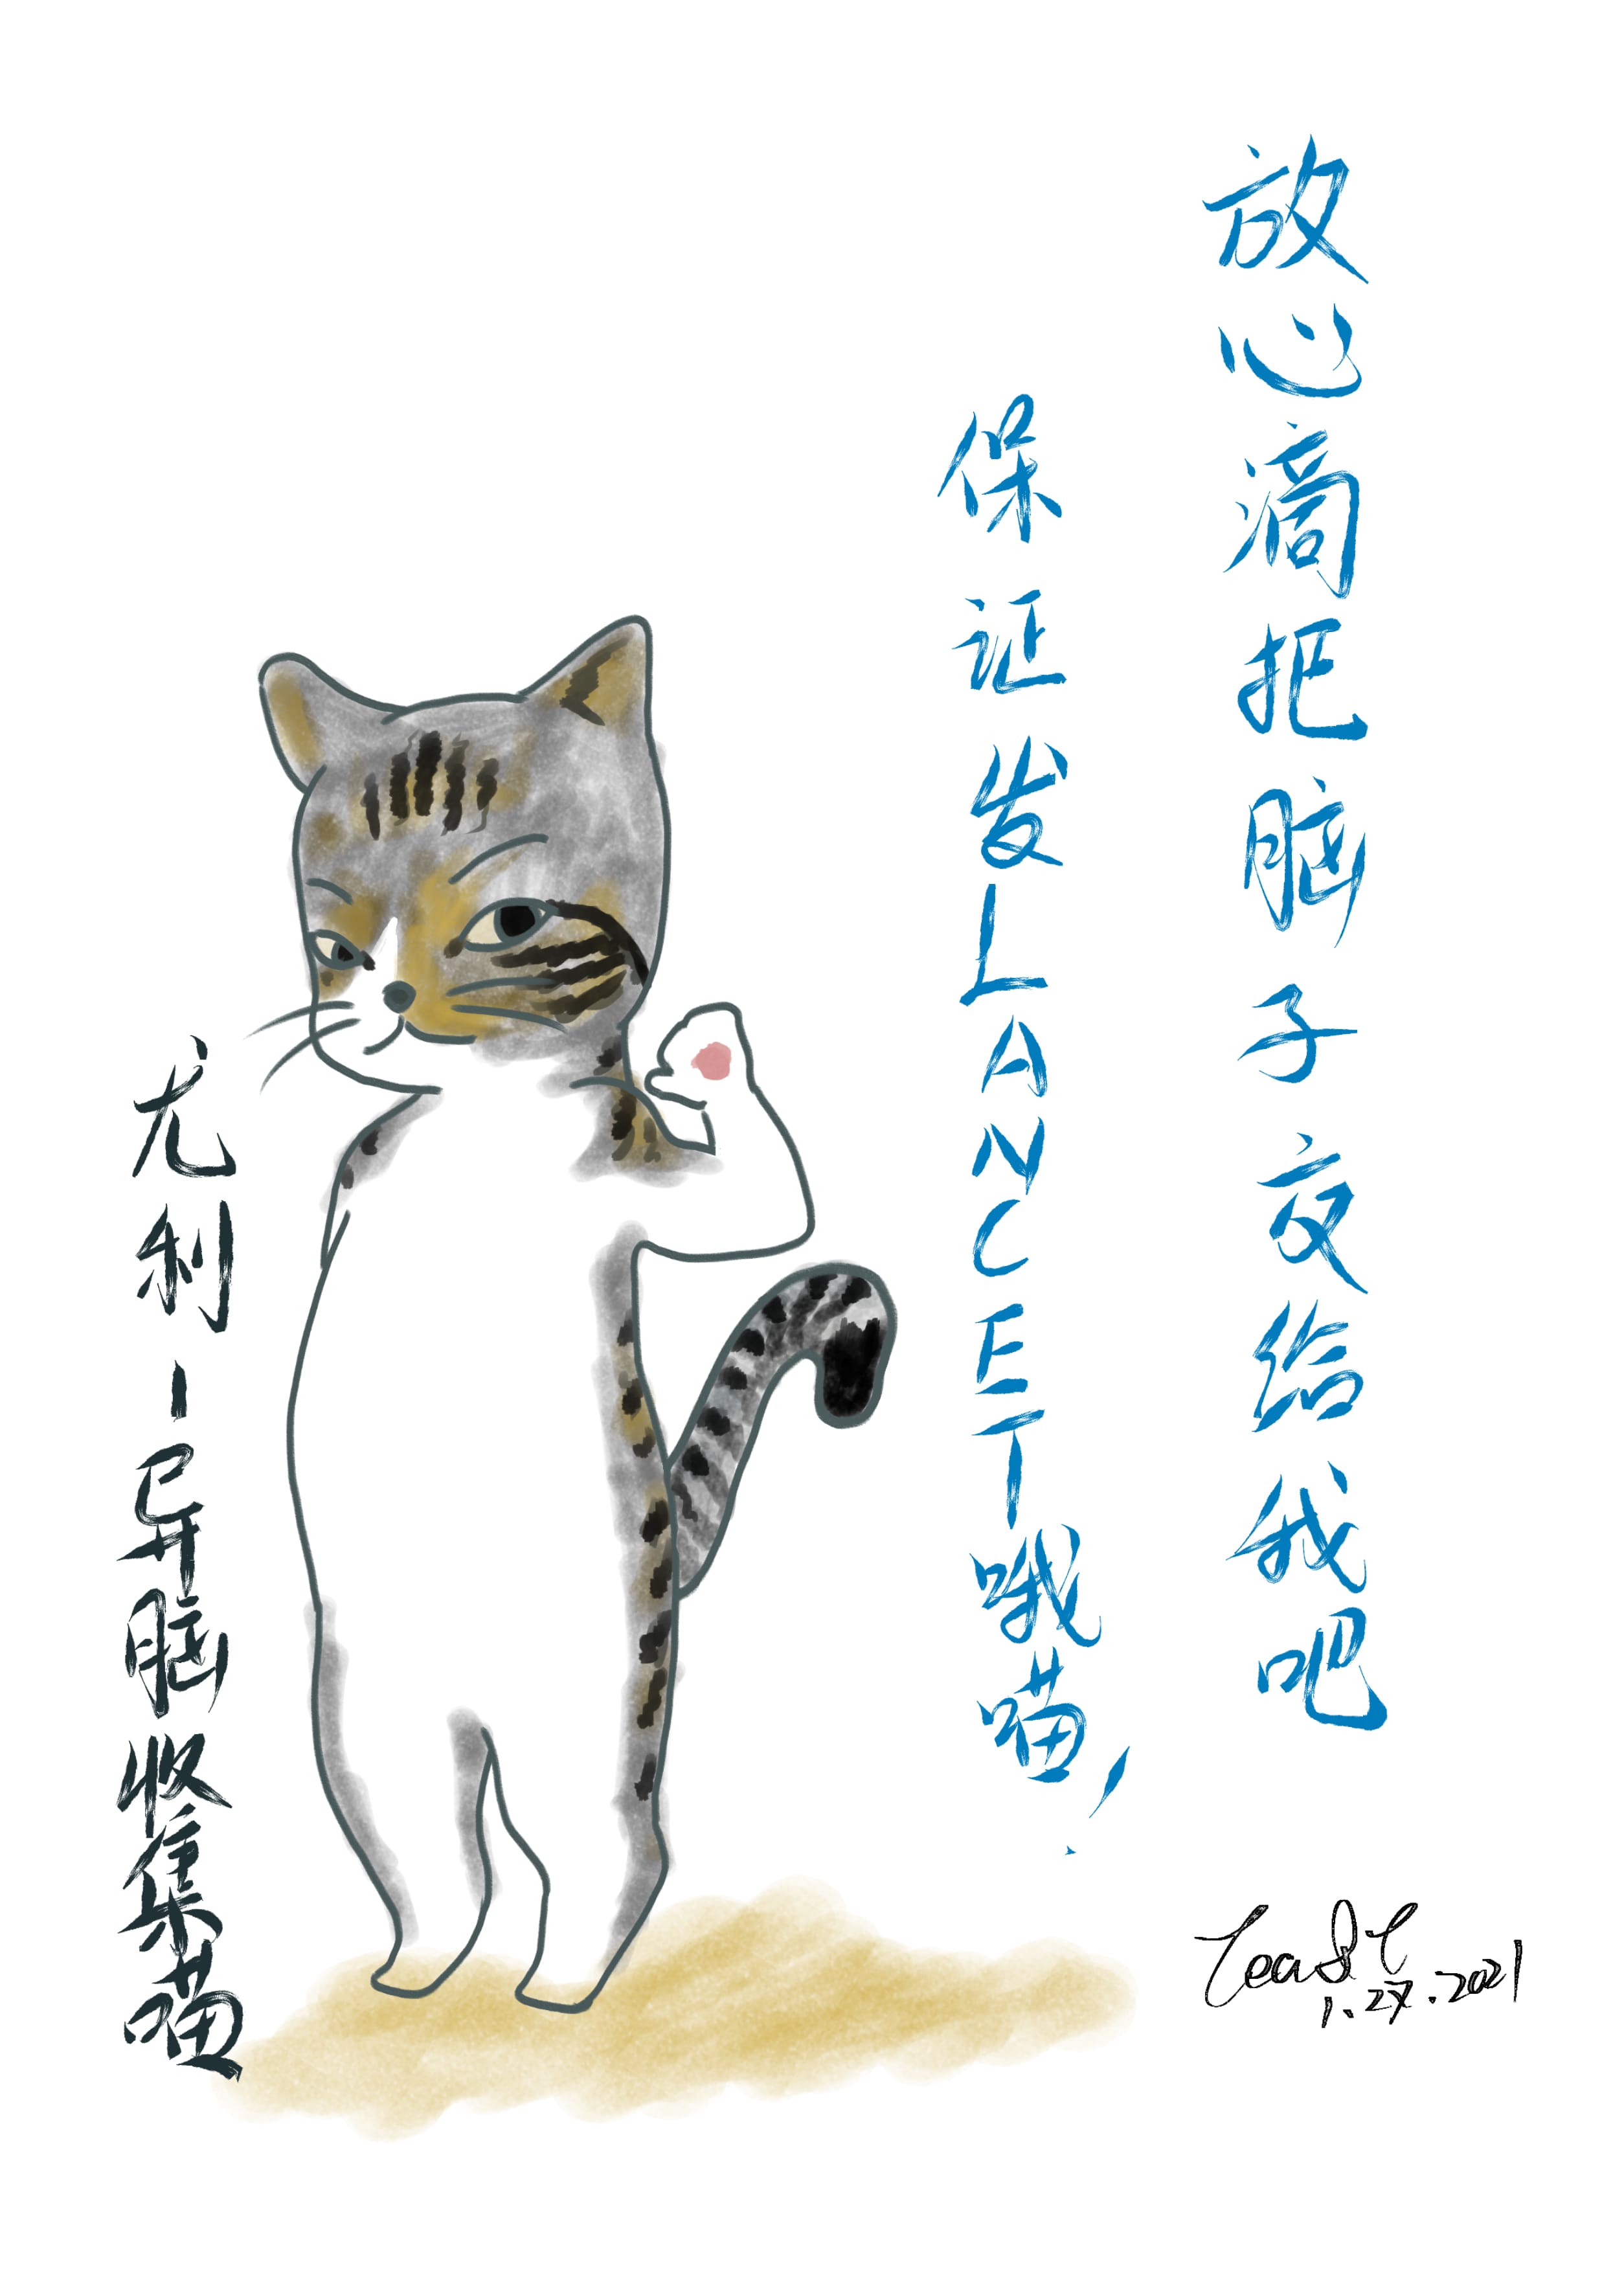 放心滴把脑子交给我吧
保证发LANCET哦喵!
尤利-异脑收集喵
1.27.2021